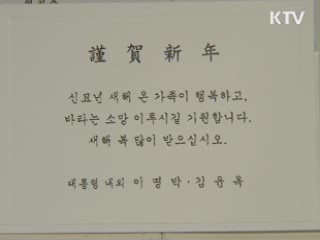 KTV
謹賀新年
신묘년 새해 온 가족이 행복하고,
바라는 소망 이루시길 기원합니다.
새해 복 많이 받으십시오.
대통령 내외 이명박·김윤옥